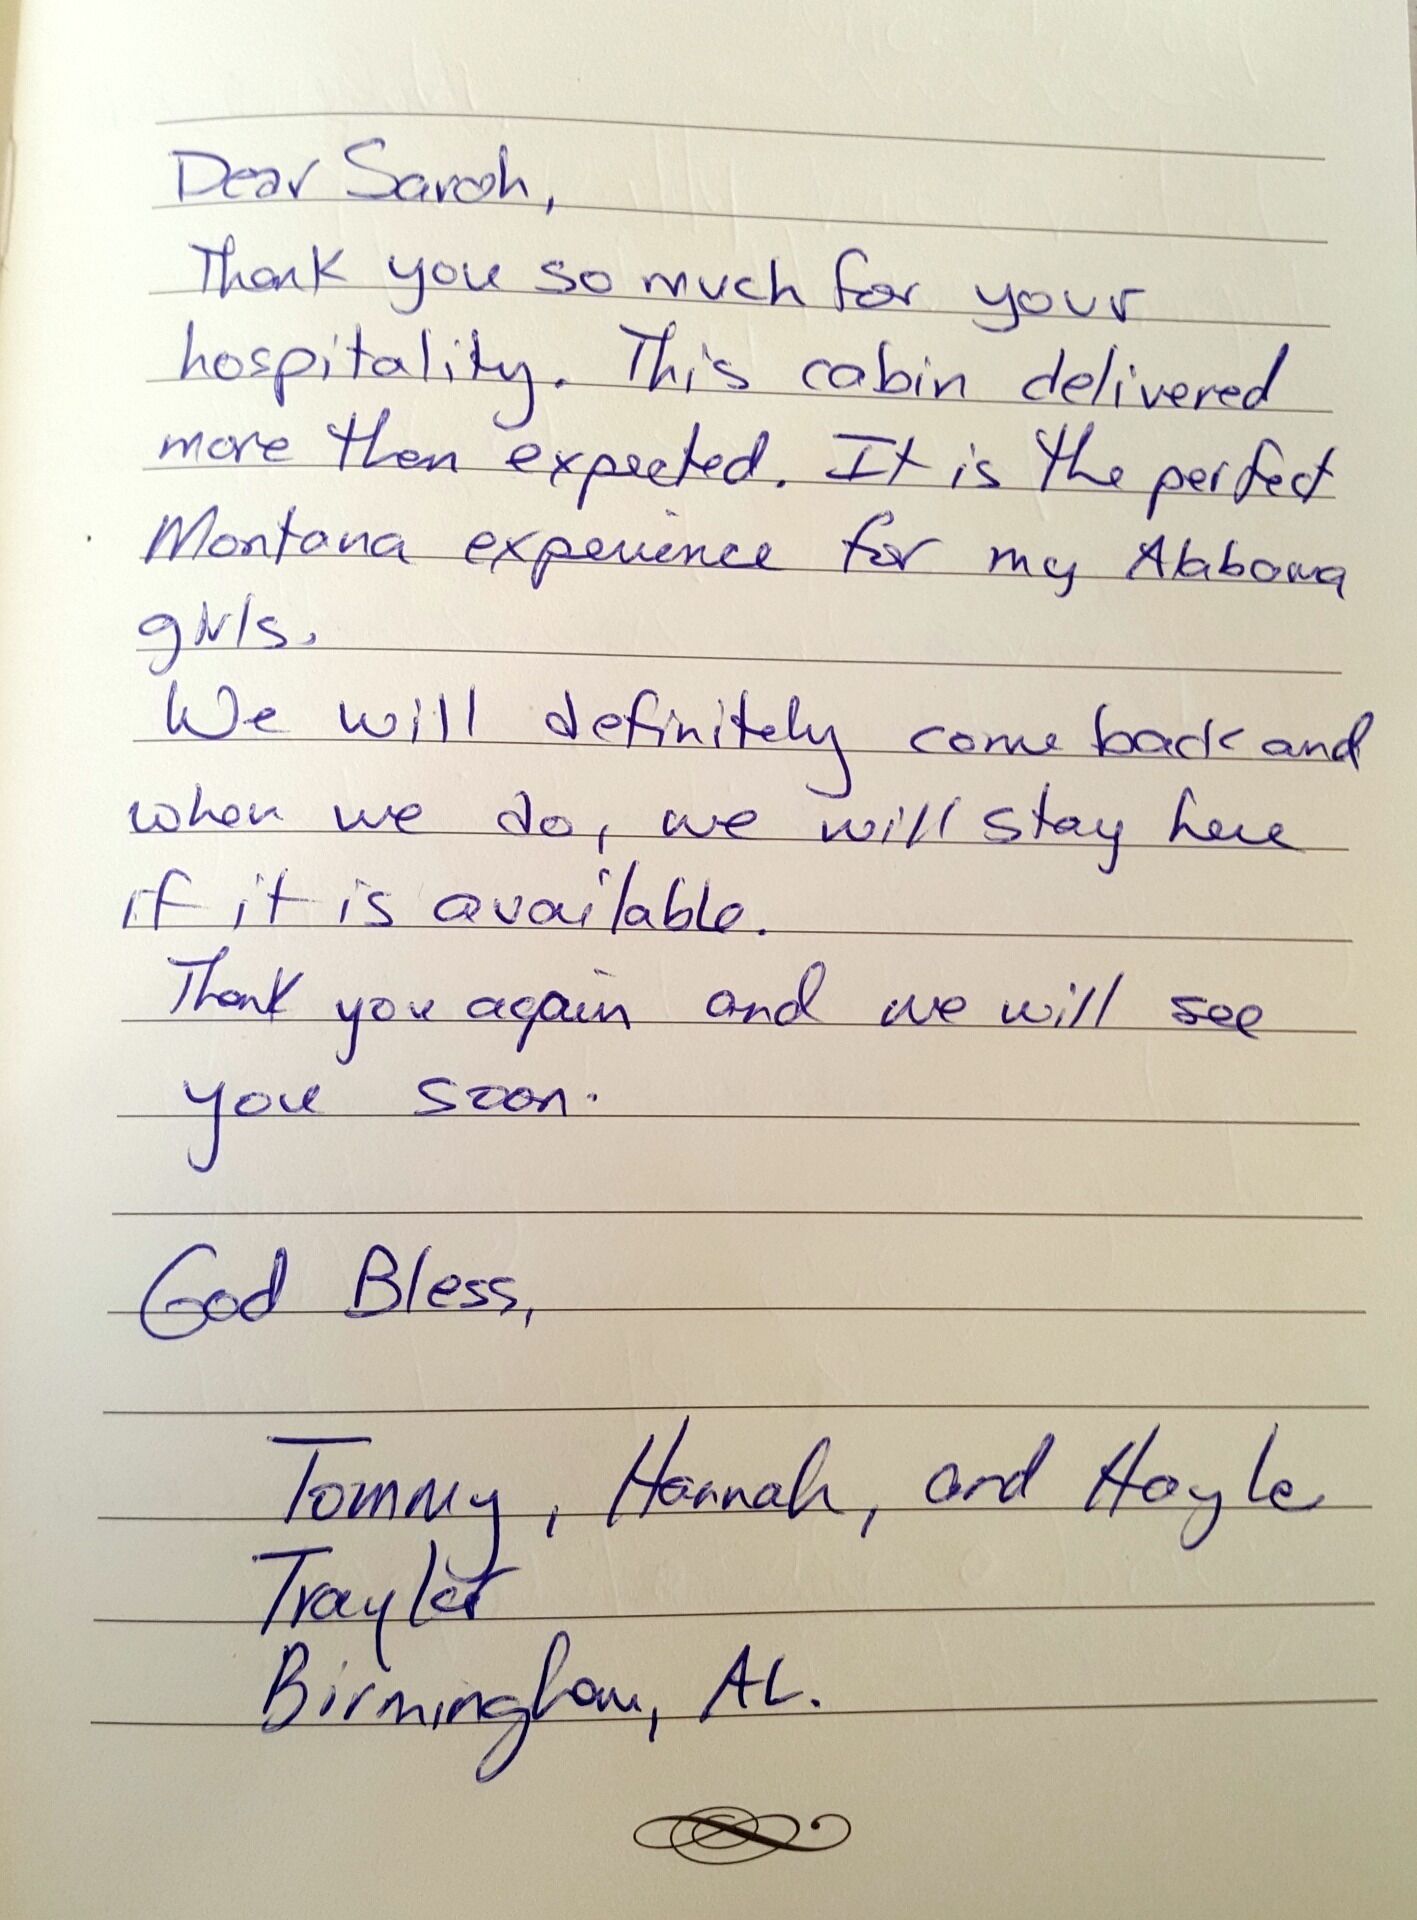 Dear Sarah,
Thank you so much for your
hospitality. This cabin delivered
more then expected. It is the perfect
Montana experience for my Alabama
girls.
We will definitely come back and
when we do, we will stay here
if it is available.
Thank you again and we will see
you soon.
God Bless,
Tommy, Hannah, and Hayle
Trayler
Birmingham, AL.